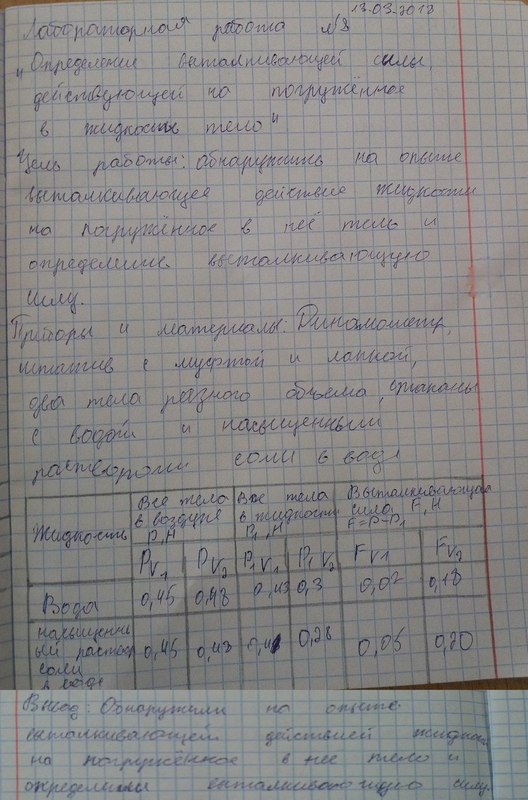 13-03-2018
Лабораторная работа №8
"Определение выталкивающей силы,
действующей на погружённое
в жидкость тело"
Цель работы: обнаружить на опыте
выталкивающее действие жидкости
на погружённое в неё тело и
определить выталкивающую
силу.
Приборы и материалы: Динамометр,
штатив с муфтой и лапкой,
два тела разного объёма, стаканы
с водой и насыщенным
раствором соли в воде
Жидкость Вес тела в воздухе P, Н Вес тела в жидкости P₁, Н Выталкивающая сила, F, Н F=P-P₁
Pv₁ Pv₂ P₁v₁ P₁v₂ Fv₁ Fv₂
Вода 0,45 0,48 0,43 0,3 0,02 0,18
насыщенный раствор соли в воде 0,45 0,48 0,28 0,05 0,20
Вывод: Обнаружили на опыте
выталкивающей действией жидкости
на погружённое в нее тело и
определили силу.